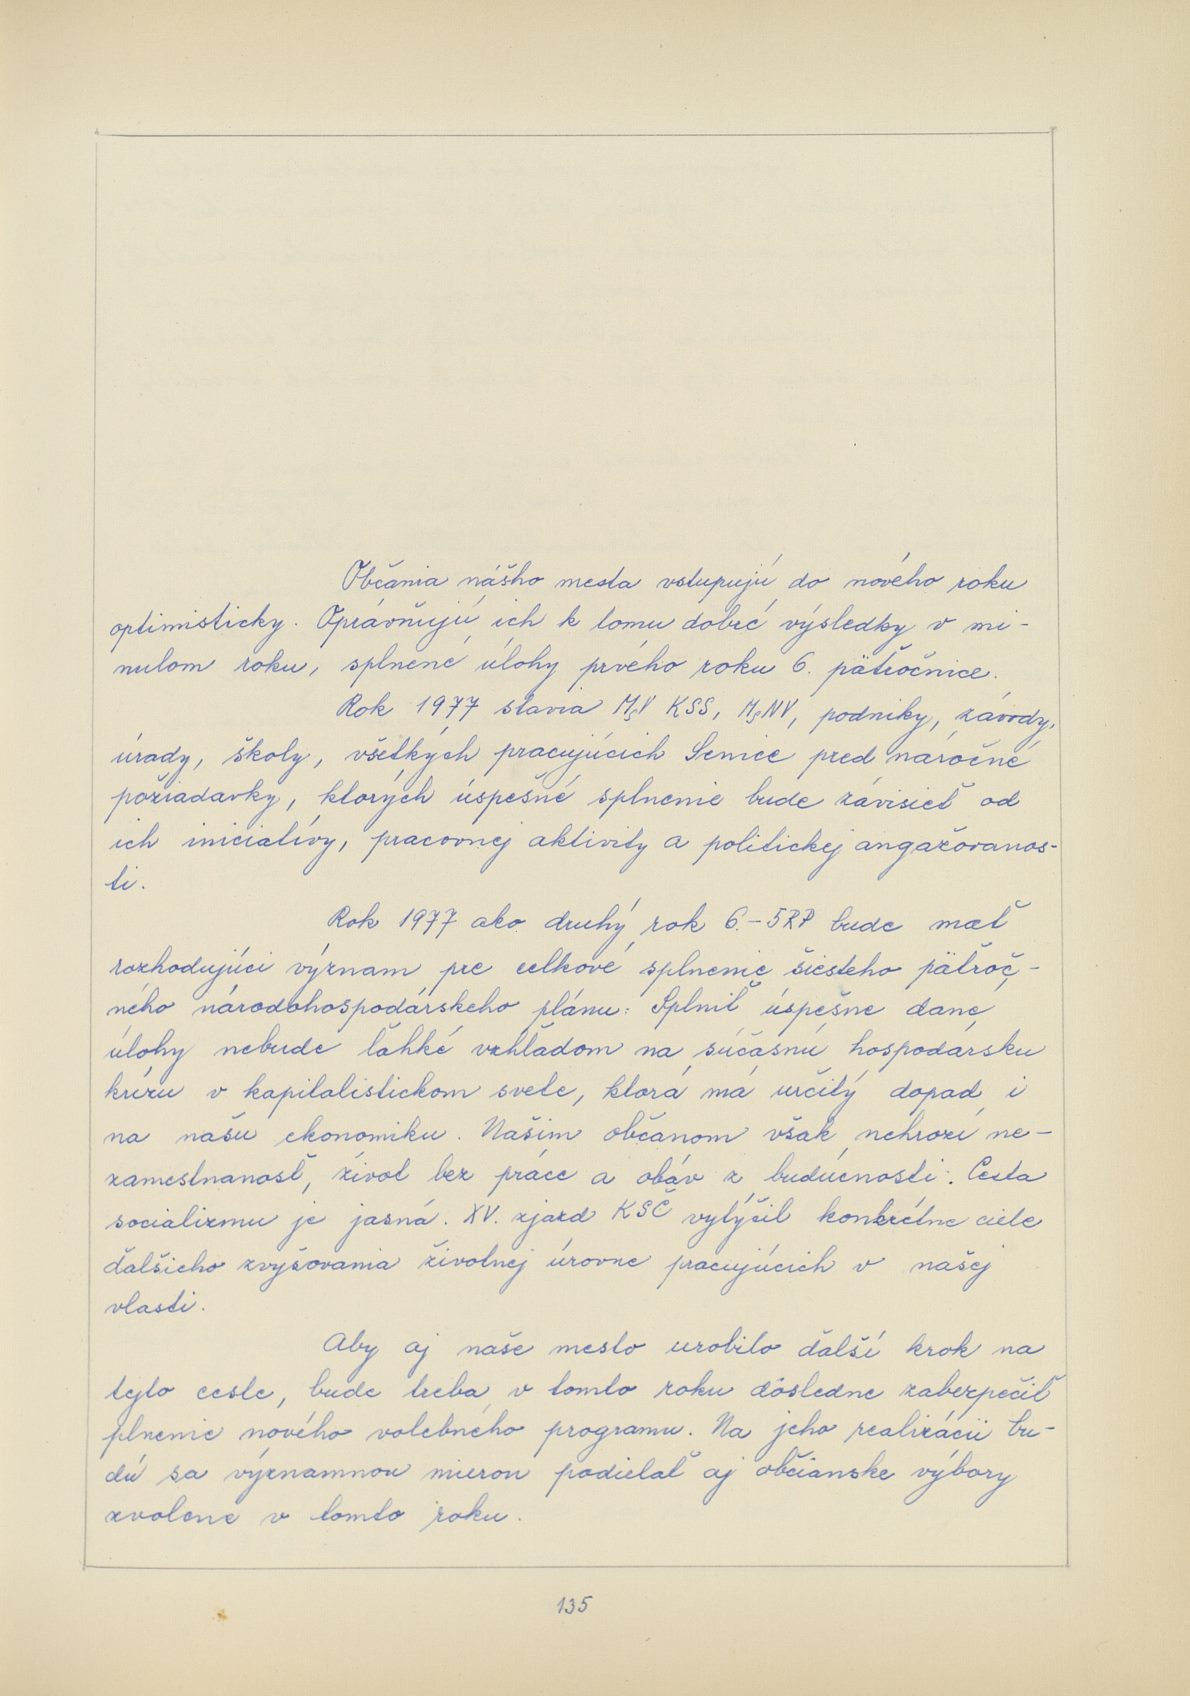 Občania nášho mesta vstupujú do nového roku
optimisticky. Oprávňujú ich k tomu dobré výsledky v mi-
nulom roku, splnené úlohy prvého roku 6. päťročnice.
Rok 1977 stavia MsV KSS, MsNV, podniky, závody,
úrady, školy, všetkých pracujúcich Senice pred náročné
požiadavky, ktorých úspešné splnenie bude závisieť od
ich iniciatívy, pracovnej aktivity a politickej angažovanos-
ti.
Rok 1977 ako druhý rok 6.-5RP bude mať
rozhodujúci význam pre celkové splnenie šiesteho päťroč-
ného národohospodárskeho plánu. Splniť úspešne dané
úlohy nebude ľahké vzhľadom na súčasnú hospodársku
krízu v kapitalistickom svete, ktorá má určitý dopad i
na našu ekonomiku. Našim občanom však nehrozí ne-
zamestnanosť, život bez práce a obáv z budúcnosti. Cesta
socializmu je jasná. XV. zjazd KSČ vytýčil konkrétne ciele
ďalšieho zvyšovania životnej úrovne pracujúcich v našej
vlasti.
Aby aj naše mesto urobilo ďalší krok na
tejto ceste, bude treba v tomto roku dôsledne zabezpečiť
plnenie nového volebného programu. Na jeho realizácii bu-
dú sa významnou mierou podielať aj občianske výbory
zvolené v tomto roku.
135